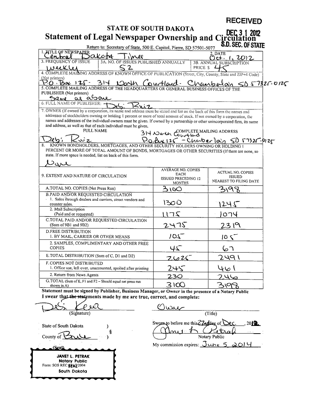 RECEIVED
DEC 31 2012
S.D. SEC. OF STATE
STATE OF SOUTH DAKOTA
Statement of Legal Newspaper Ownership and Circulation
Return to: Secretary of State, 500 E. Capitol, Pierre, SD 57501-5077
1. TITLE OF NEWSPAPER
Central Dakota Times
2. DATE
Oct. 1, 2012
3. FREQUENCY OF ISSUE
Weekly
3A. NO. OF ISSUES PUBLISHED ANNUALLY
52
3B. ANNUAL SUBSCRIPTION PRICE $ 45
4. COMPLETE MAILING ADDRESS OF KNOWN OFFICE OF PUBLICATION (Street, City, County, State and ZIP+4 Code) (Not printers)
P.O. Box 125 - 314 North Courtland - Chamberlain SD 57325-0125
5. COMPLETE MAILING ADDRESS OF THE HEADQUARTERS OR GENERAL BUSINESS OFFICES OF THE PUBLISHER (Not printer)
Same as above
6. FULL NAME OF PUBLISHER:
7. OWNER (If owned by a corporation, its name and address must be stated and
FULL NAME
COMPLETE MAILING ADDRESS
314 North Courtland
PO Box 125 - Chamberlain SD 57325-0125
8. KNOWN BONDHOLDERS, MORTGAGEES, AND OTHER SECURITY HOLDERS OWNING OR HOLDING 1 PERCENT OR MORE OF TOTAL AMOUNT OF BONDS, MORTGAGES OR OTHER SECURITIES (If there are none, so state. If more space is needed, list on back of this form.)
None
9. EXTENT AND NATURE OF CIRCULATION
AVERAGE NO. COPIES EACH ISSUED PRECEDING 12 MONTHS
ACTUAL NO. COPIES ISSUED NEAREST TO FILING DATE
A. TOTAL NO. COPIES (Net Press Run)
3100
3198
B. PAID AND/OR REQUESTED CIRCULATION
1. Sales through dealers and carriers, street vendors and counter sales.
1300
1245
2. Mail Subscription
(Paid and or requested)
1175
1074
C. TOTAL PAID AND/OR REQUESTED CIRCULATION
(Sum of 9B1 and 9B2)
2475
2319
D. FREE DISTRIBUTION
1. BY MAIL, CARRIER OR OTHER MEANS
105
105
2. SAMPLES, COMPLIMENTARY AND OTHER FREE COPIES
45
67
E. TOTAL DISTRIBUTION (Sum of C, D1 and D2)
2625
2491
F. COPIES NOT DISTRIBUTED
1. Office use, left over, unaccounted, spoiled after printing
245
461
2. Return from News Agents
230
246
G. TOTAL (Sum of E, F1 and F2 - Should equal net press run shown in A)
3100
3198
Statement must be signed by Publisher, Business Manager, or Owner in the presence of a Notary Public
I swear that the statements made by me are true, correct, and complete:
Owner
(Signature)
(Title)
State of South Dakota )
County of Brule )
Sworn to before me this
Dec, 2012
Notary Public
My commission expires: June 5, 2014
JANET L. PETRAK
Notary Public
SEAL
South Dakota